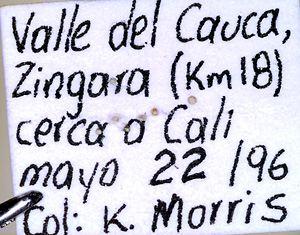 Valle del Cauca,
Zingara (Km 18)
cerca a Cali
mayo 22 /96
Col: K. Morris